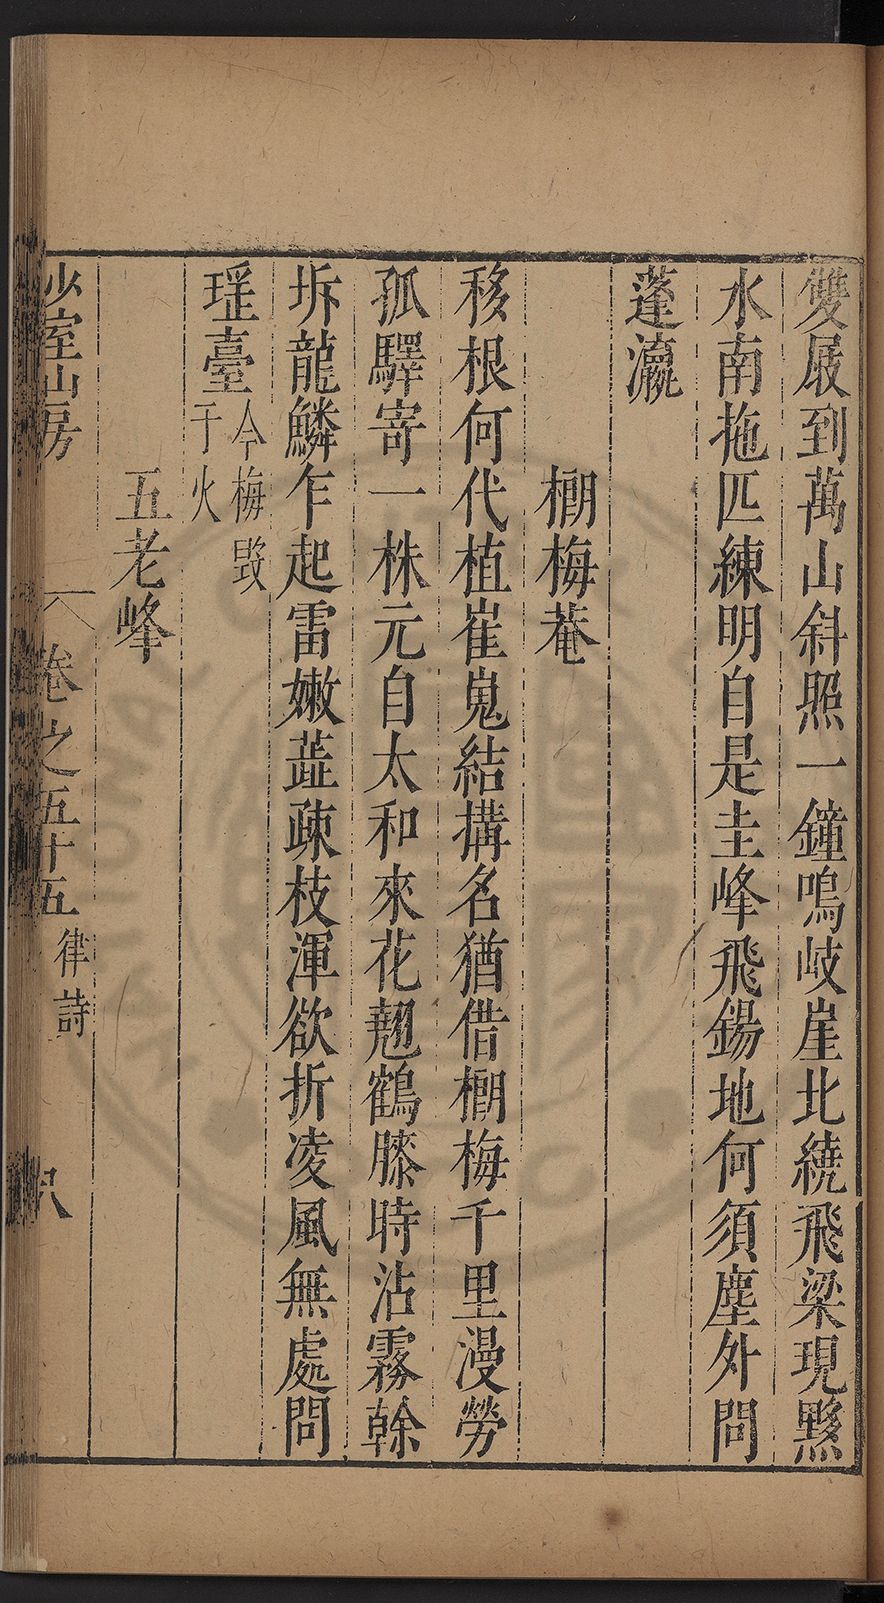 雙屐到萬山斜照一鐘鳴岐崖北繞飛梁現黟
水南拖匹練明自是圭峰飛錫地何須塵外問
蓬瀛
榔梅菴
移根何代植崔嵬結搆名猶借榔梅千里漫勞
孤驛寄一株元自太和來花翹鶴膝時沾霧幹
坼龍鱗乍起雷嫩蕋疎枝渾欲折凌風無處問
瑶臺今梅毀
于火
五老峰
少室山房
卷之五十五 律詩